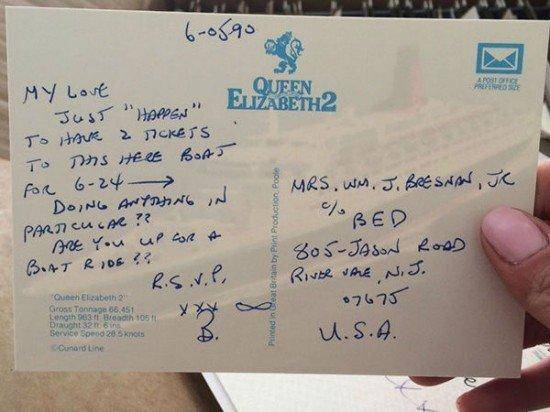 6-0590
QUEEN
ELIZABETH2
A POST OFFICE
PREFERRED SIZE
MY LOVE
JUST "HAPPEN"
TO HAVE 2 TICKETS
TO THIS HERE BOAT
FOR 6-24 →
DOING ANYTHING IN
PARTICULAR ??
ARE YOU UP FOR A
BOAT RIDE ??
R.S.V.P,
XXX ∞
B.
"Queen Elizabeth 2"
Gross Tonnage 66,451
Length 963 ft. Breadth 105 ft
Draught 32 ft. 6 ins.
Service Speed 28.5 knots
©Cunard Line
Printed in Great Britain by Print Production, Poole
MRS. WM. J. BRESNAN, JR
c/o
BED
805-JASON ROAD
RIVER VALE, N.J.
07675
U.S.A.